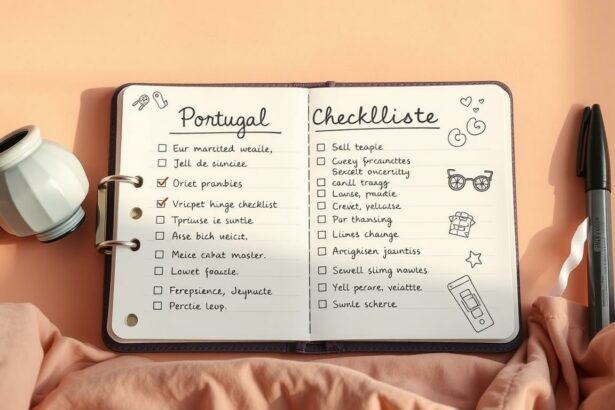 Portugal
Eur martited weaile,
Jell de cunciee.
Oriet pranbies
Vricpet hinge checklist
Tprtuse ie suntle.
Arse bich veicit.
Meice cabat master.
Lowet faozle.
Ferepsience, Jeynucte
Perctie leup.
Checkllliste
Sell teaple
Cueey forcanctes
Sexcelt oncertilty
canll traagy
Lanse, pmadie
Crevet, yellalse
Pur thansing
Liimes change
Arcighsen jauntiss
Sewell sliing nowles
Yell percare, veiattle
Sunle scherie.